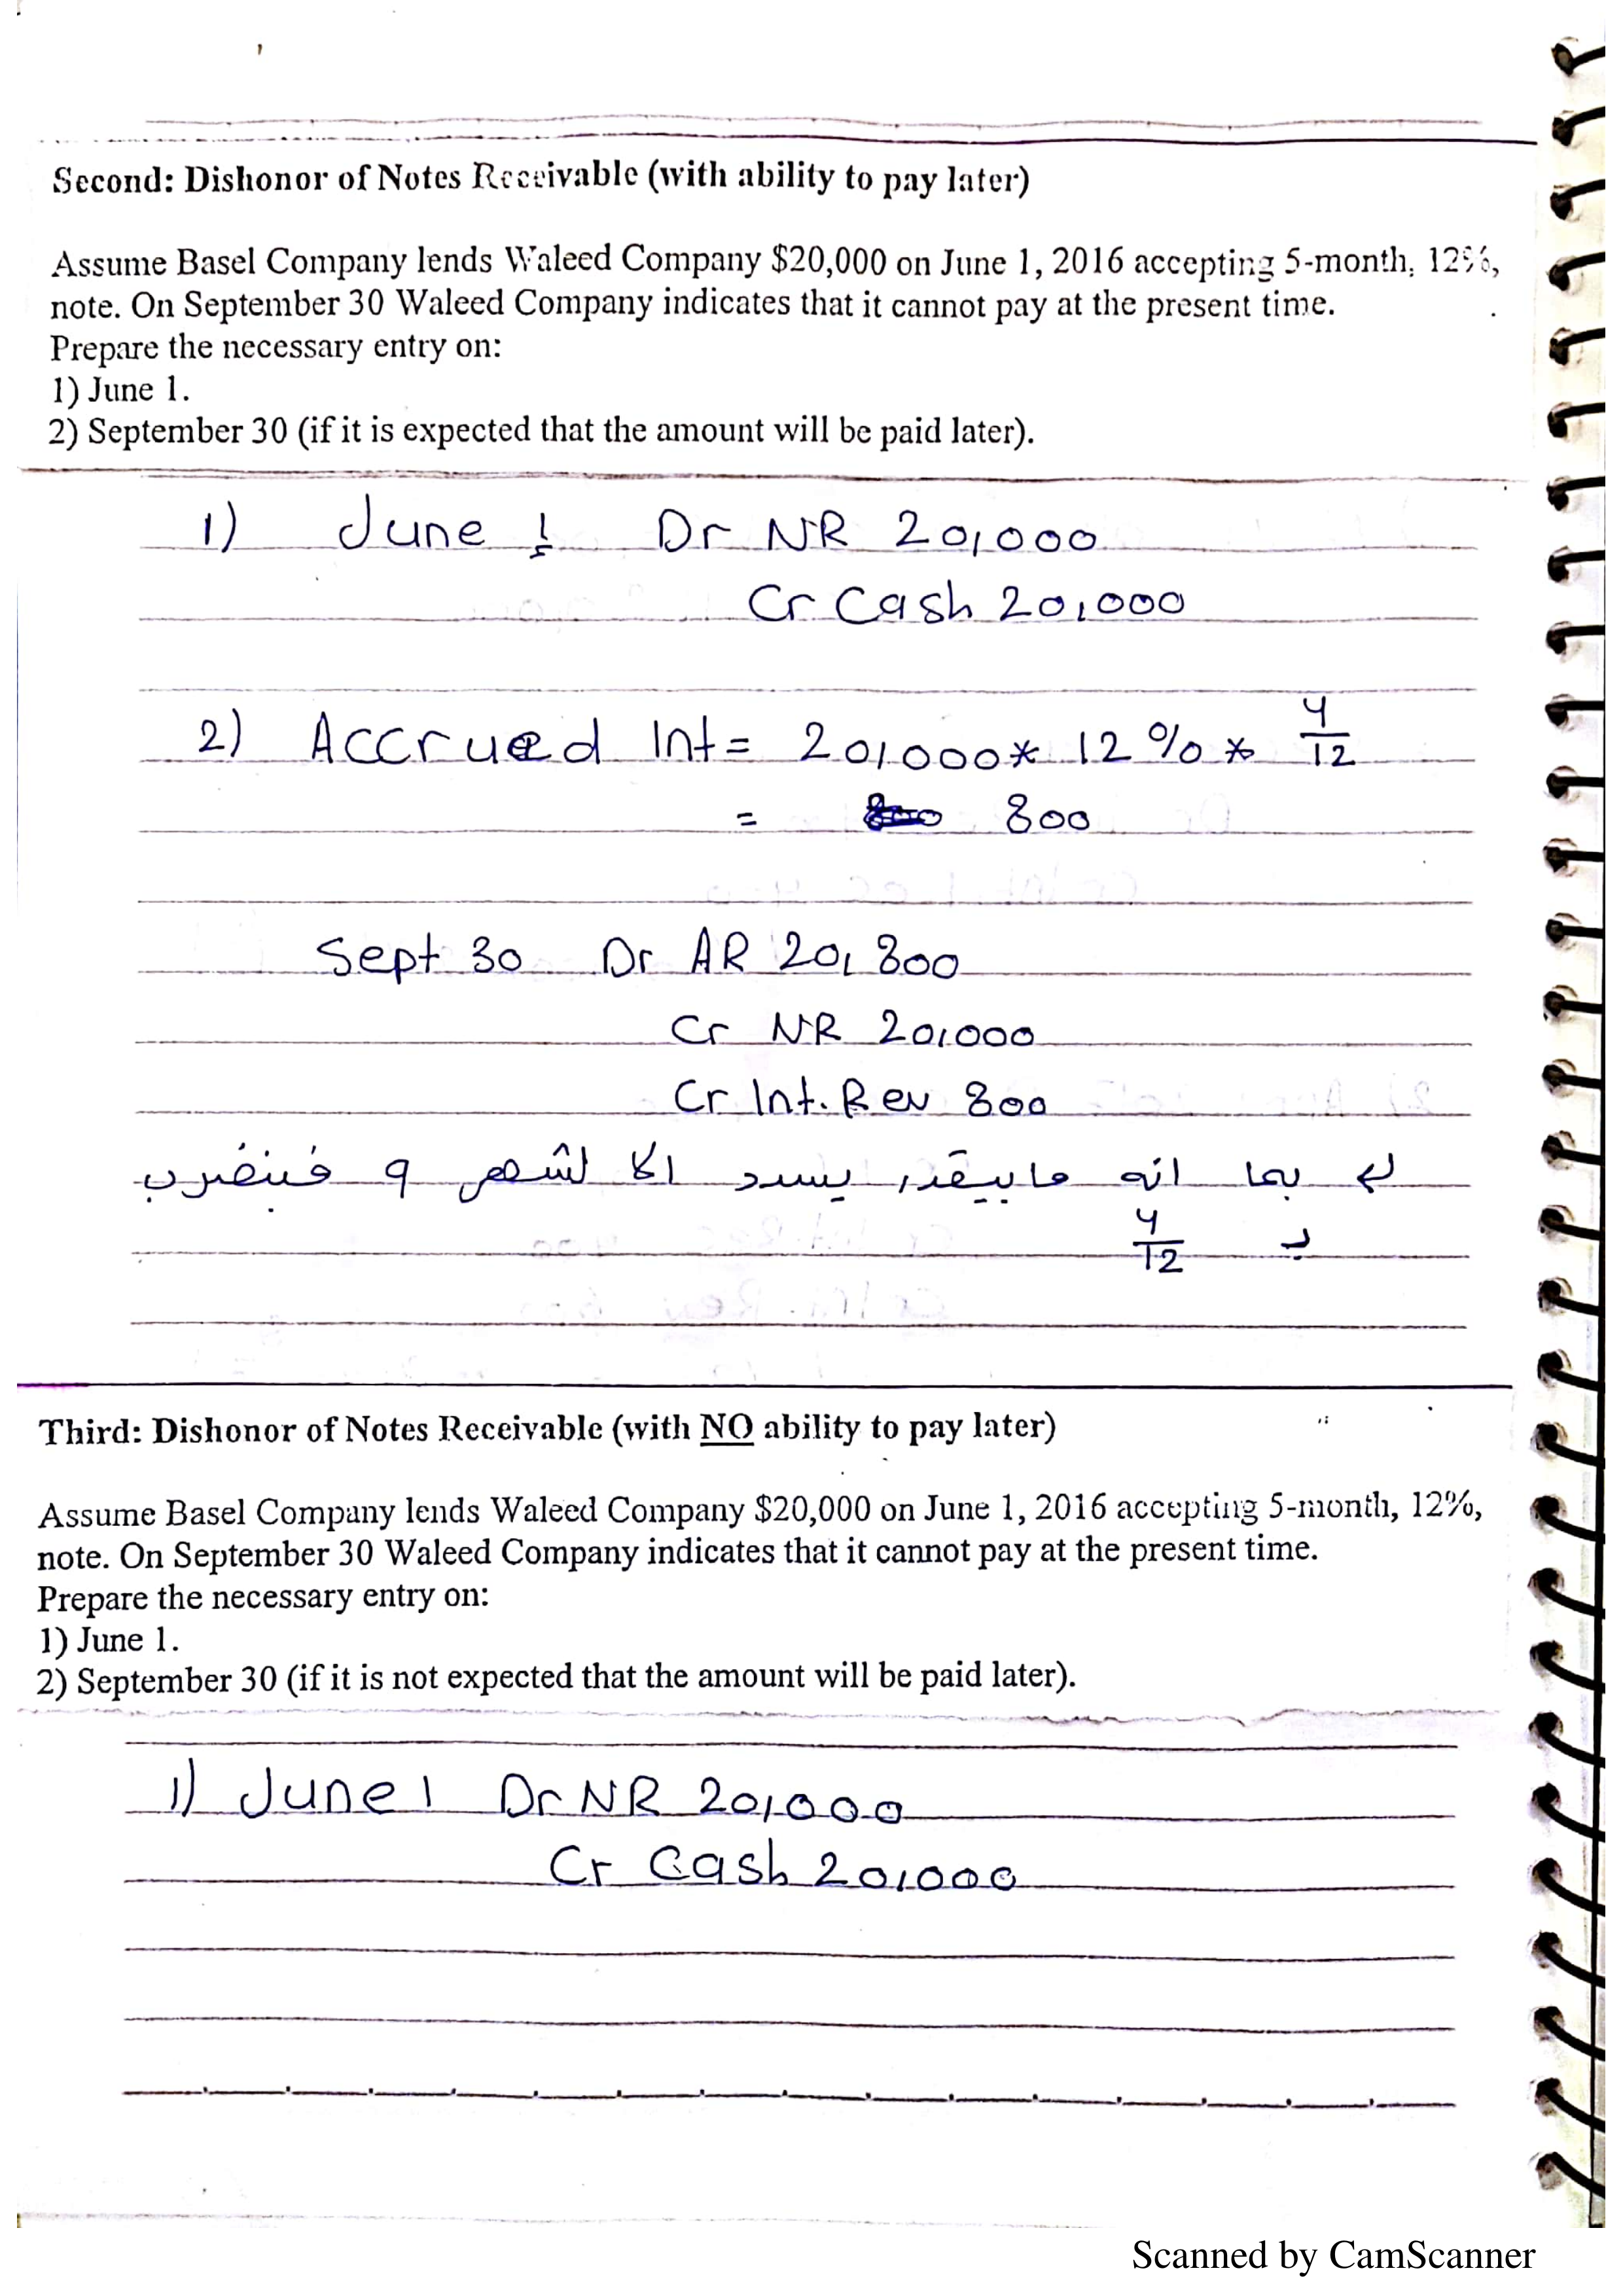 Second: Dishonor of Notes Receivable (with ability to pay later)
Assume Basel Company lends Waleed Company $20,000 on June 1, 2016 accepting 5-month, 12%,
note. On September 30 Waleed Company indicates that it cannot pay at the present time.
Prepare the necessary entry on:
1) June 1.
2) September 30 (if it is expected that the amount will be paid later).
1) June 1 Dr NR 20,000
Cr Cash 20,000
2) Accrued Int = 20,000 * 12% * 4/12
= 800
Sept 30 Dr AR 20,800
Cr NR 20,000
Cr Int. Rev 800
بما انه ما بيقدر يسدد الا لشهر 9 فبنضرب
بـ 4/12
Third: Dishonor of Notes Receivable (with NO ability to pay later)
Assume Basel Company lends Waleed Company $20,000 on June 1, 2016 accepting 5-month, 12%,
note. On September 30 Waleed Company indicates that it cannot pay at the present time.
Prepare the necessary entry on:
1) June 1.
2) September 30 (if it is not expected that the amount will be paid later).
1) June 1 Dr NR 20,000
Cr Cash 20,000
Scanned by CamScanner